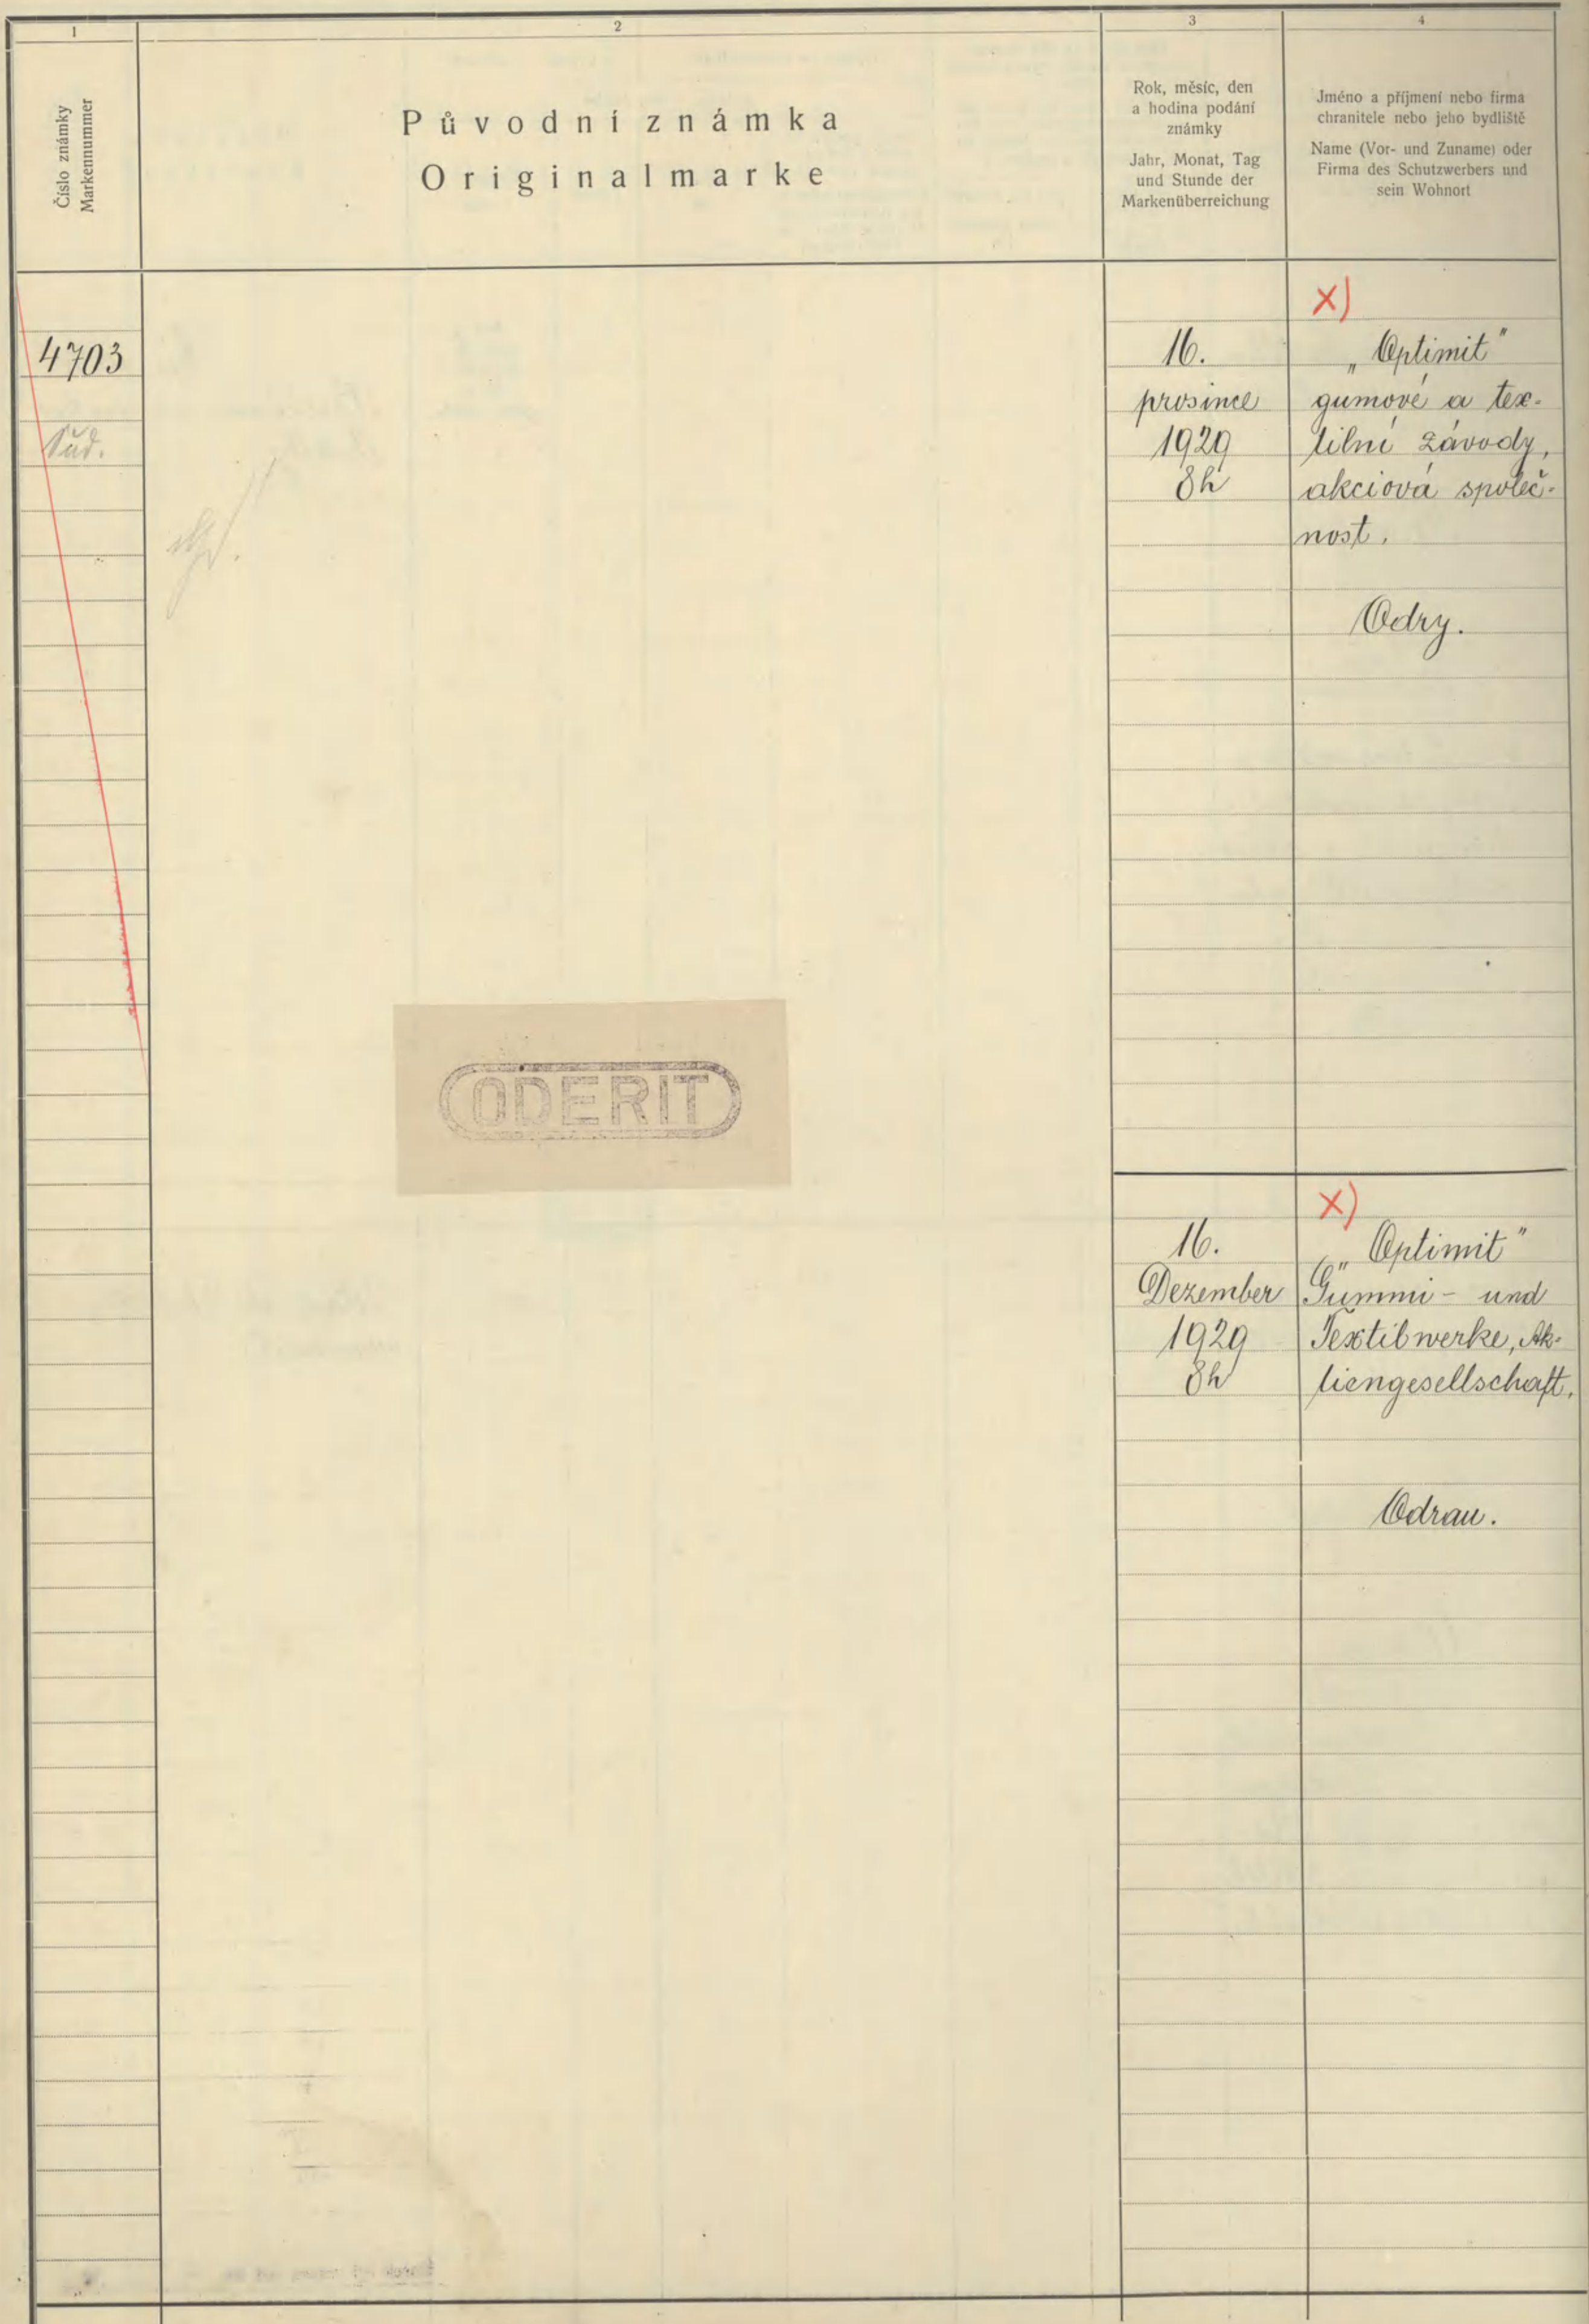 1
2
3
4
Číslo známky
Markennummer
Původní známka
Originalmarke
Rok, měsíc, den
a hodina podání
známky
Jahr, Monat, Tag
und Stunde der
Markenüberreichung
Jméno a příjmení nebo firma
chranitele nebo jeho bydliště
Name (Vor- und Zuname) oder
Firma des Schutzwerbers und
sein Wohnort
4703
16.
prosince
1929
8h
x)
„Optimit"
gumové a tex-
tilní závody,
akciová společ-
nost.
Odry.
ODERIT
16.
Dezember
1929
8h
x)
„Optimit"
Gummi- und
Textilwerke, Ak-
tiengesellschaft.
Odrau.